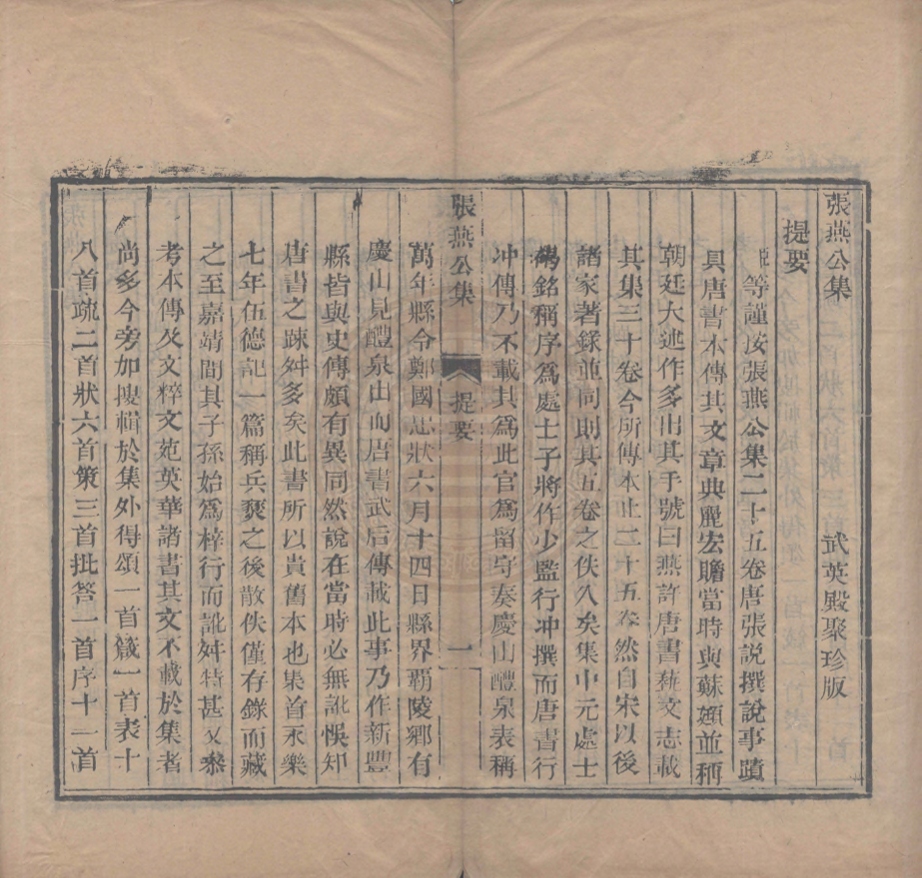 張燕公集　武英殿聚珍版
提要
臣等謹按張燕公集二十五卷唐張說撰說事蹟
具唐書本傳其文章典麗宏贍當時與蘇頲並稱
朝廷大述作多出其手號曰燕許唐書藝文志載
其集三十卷今所傳本止二十五卷然自宋以後
諸家著錄並同則其五卷之佚久矣集中元處士
碣銘稱序爲處士子將作少監行冲撰而唐書行
冲傳乃不載其爲此官爲留守奏慶山醴泉表稱
張燕公集　提要　一
萬年縣令鄭國忠狀六月十四日縣界霸陵鄉有
慶山見醴泉出而唐書武后傳載此事乃作新豐
縣皆與史傳頗有異同然說在當時必無訛悞知
唐書之疎舛多矣此書所以貴舊本也集首永樂
七年伍德記一篇稱兵燹之後散佚僅存錄而藏
之至嘉靖間其子孫始爲梓行而訛舛特甚又參
考本傳及文粹文苑英華諸書其文不載於集者
尚多今旁加搜輯於集外得頌一首箴一首表十
八首疏二首狀六首策三首批答一首序十一首